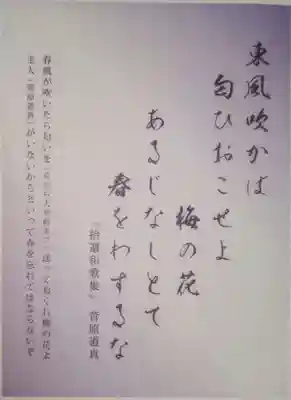 東風吹かば
匂ひおこせよ
梅の花
あるじなしとて
春をわするな
『拾遺和歌集』 菅原道真
春風が吹いたら匂いを
送っておくれ梅の花よ
主人
がいないからといって春を忘れてはならないぞ